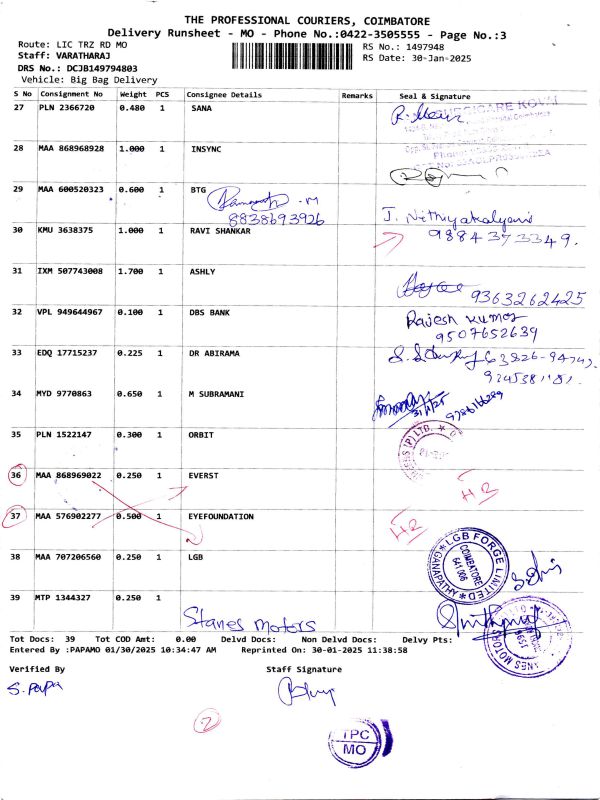 THE PROFESSIONAL COURIERS, COIMBATORE
Delivery Runsheet - MO - Phone No.:0422-3505555 - Page No.:3
Route: LIC TRZ RD MO
RS No.: 1497948
Staff: VARATHARAJ
RS Date: 30-Jan-2025
DRS No.: DCJB149794803
Vehicle: Big Bag Delivery
S No Consignment No Weight PCS Consignee Details Remarks Seal & Signature
27 PLN 2366720 0.480 1 SANA
28 MAA 868968928 1.000 1 INSYNC
29 MAA 600520323 0.600 1 BTG
8838693926
J. Nithiyakalyani
30 KMU 3638375 1.000 1 RAVI SHANKAR
9884373349.
31 IXM 507743008 1.700 1 ASHLY
9363262425
32 VPL 949644967 0.100 1 DBS BANK
Rajesh Kumar
9507652639
33 EDQ 17715237 0.225 1 DR ABIRAMA
34 MYD 9770863 0.650 1 M SUBRAMANI
35 PLN 1522147 0.300 1 ORBIT
36 MAA 868969022 0.250 1 EVERST
37 MAA 576902277 0.500 1 EYEFOUNDATION
38 MAA 707206560 0.250 1 LGB
LGB FORGE LIMITED
GANAPATHY
COIMBATORE
641 006
39 MTP 1344327 0.250 1
Stanes Motors
Tot Docs: 39 Tot COD Amt: 0.00 Delvd Docs: Non Delvd Docs: Delvy Pts:
Entered By :PAPAMO 01/30/2025 10:34:47 AM Reprinted On: 30-01-2025 11:38:58
Verified By Staff Signature
S. Papa
2
TPC
MO